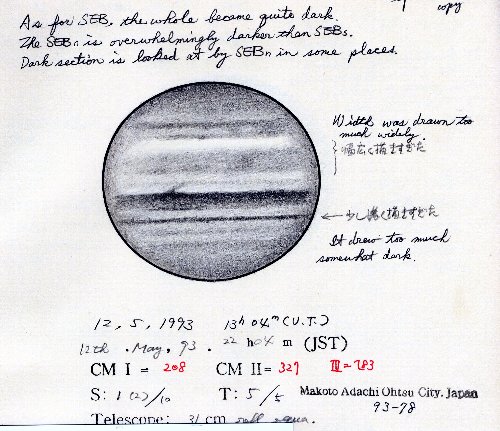 copy
As for SEB, the whole became quite dark.
The SEBn is overwhelmingly darker than SEBs.
Dark section is looked at by SEBn in some places.
Width was drawn too
much widely.
幅広く描きすぎた
← 少し濃く描きすぎた
It drew too much
somewhat dark.
12, 5, 1993 13h 04m (U.T.)
12th . May, 93 . 22 h04 m (JST)
CM I = 208 CM II= 327 III=283
S: 1 (2)/10 T: 5/5 Makoto Adachi Ohtsu City. Japan
93-78
Telescope: 31 cm